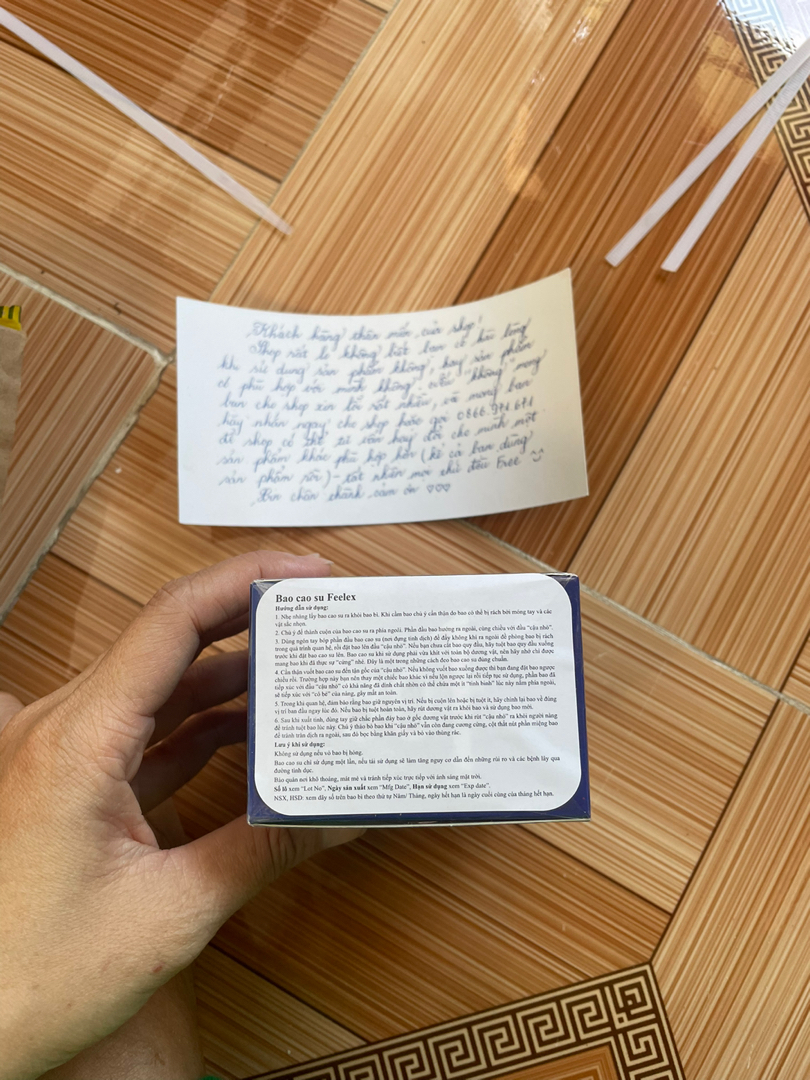 Khách hàng thân mến của shop!
Shop rất lo không biết bạn có hài lòng
khi sử dụng sản phẩm không, hay sản phẩm
có phù hợp với mình không. Nếu "không" mong
bạn cho shop xin lỗi rất nhiều, và mong bạn
hãy nhắn ngay cho shop hoặc gọi 0866.974.671
để shop có thể tư vấn hay đổi cho mình một
sản phẩm khác phù hợp hơn (kể cả bạn dùng
sản phẩm rồi) - tất nhiên mọi thứ đều Free
Xin chân thành cảm ơn ♡♡♡
Bao cao su Feelex
Hướng dẫn sử dụng:
1. Nhẹ nhàng lấy bao cao su ra khỏi bao bì. Khi cầm bao chú ý cẩn thận do bao có thể bị rách bởi móng tay và các
vật sắc nhọn.
2. Chú ý để thành cuộn của bao cao su ra phía ngoài. Phần đầu bao hướng ra ngoài, cùng chiều với đầu "cậu nhỏ".
3. Dùng ngón tay bóp phần đầu bao cao su (nơi đựng tinh dịch) để đẩy không khí ra ngoài đề phòng bao bị rách
trong quá trình quan hệ, rồi đặt bao lên đầu "cậu nhỏ". Nếu bạn chưa cắt bao quy đầu, hãy tuột bao quy đầu xuống
trước khi đặt bao cao su lên. Bao cao su khi sử dụng phải vừa khít với toàn bộ dương vật, nên hãy nhớ chỉ được
mang bao khi đã thực sự "cứng" nhé. Đây là một trong những cách đeo bao cao su đúng chuẩn.
4. Cẩn thận vuốt bao cao su đến tận gốc của "cậu nhỏ". Nếu không vuốt bao xuống được thì bạn đang đặt bao ngược
chiều rồi. Trường hợp này bạn nên thay một chiếc bao khác vì nếu lộn ngược lại rồi tiếp tục sử dụng, phần bao đã
tiếp xúc với đầu "cậu nhỏ" có khả năng đã dính chất nhờn có thể chứa một ít "tinh binh" lúc này nằm phía ngoài,
sẽ tiếp xúc với "cô bé" của nàng, gây mất an toàn.
5. Trong khi quan hệ, đảm bảo rằng bao giữ nguyên vị trí. Nếu bị cuộn lên hoặc bị tuột ít, hãy chỉnh lại bao về đúng
vị trí ban đầu ngay lúc đó. Nếu bao bị tuột hoàn toàn, hãy rút dương vật ra khỏi bao và sử dụng bao mới.
6. Sau khi xuất tinh, dùng tay giữ chắc phần đáy bao ở gốc dương vật trước khi rút "cậu nhỏ" ra khỏi người nàng
để tránh tuột bao lúc này. Chú ý tháo bỏ bao khi "cậu nhỏ" vẫn còn đang cương cứng, cột thắt nút phần miệng bao
để tránh tràn dịch ra ngoài, sau đó bọc bằng khăn giấy và bỏ vào thùng rác.
Lưu ý khi sử dụng:
Không sử dụng nếu vỏ bao bị hỏng.
Bao cao su chỉ sử dụng một lần, nếu tái sử dụng sẽ làm tăng nguy cơ dẫn đến những rủi ro và các bệnh lây qua
đường tình dục.
Bảo quản nơi khô thoáng, mát mẻ và tránh tiếp xúc trực tiếp với ánh sáng mặt trời.
Số lô xem "Lot No", Ngày sản xuất xem "Mfg Date", Hạn sử dụng xem "Exp date".
NSX, HSD: xem dãy số trên bao bì theo thứ tự Năm/ Tháng, ngày hết hạn là ngày cuối cùng của tháng hết hạn.